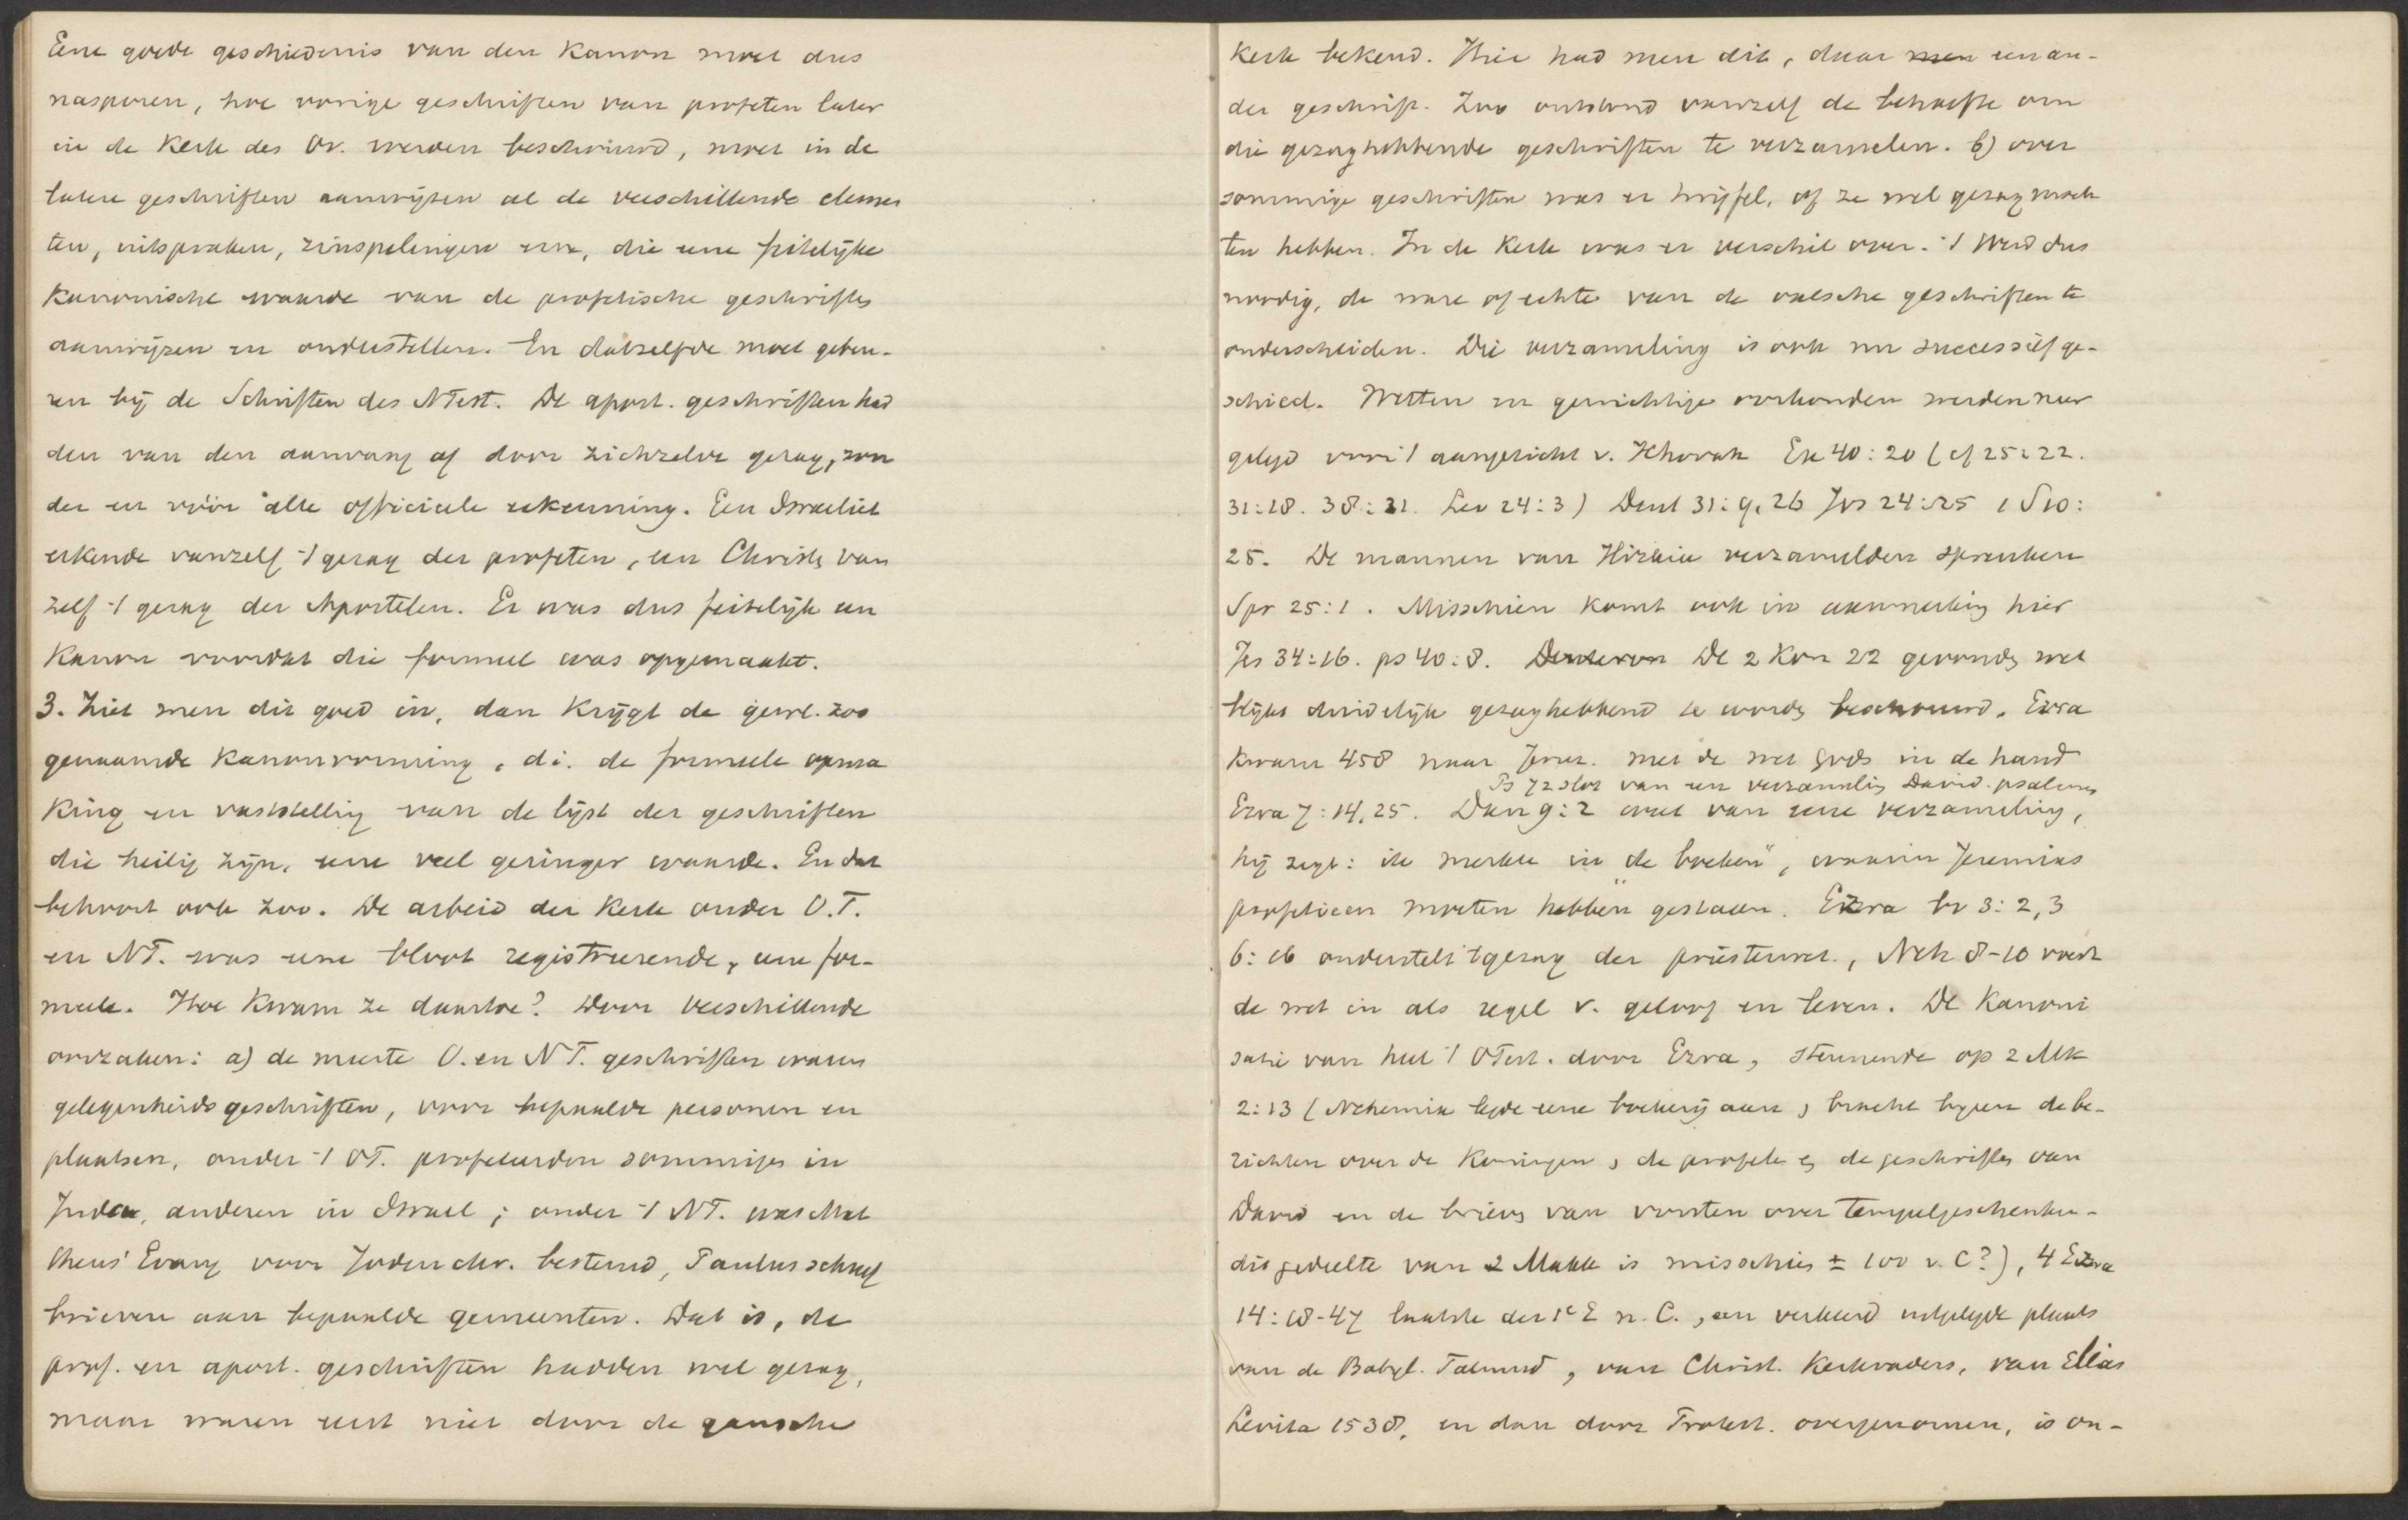 Eene goede geschiedenis van den Kanon moet dus
nasporen, hoe vorige geschriften van profeten later
in de Kerk des Ov. werden beschouwd, moet in de
latere geschriften aanwijzen al de verschillende elemen
ten, uitspraken, zinspelingen enz, die eene feitelijke
Kanonische waarde van de profetische geschriften
aanwijzen en onderstellen. En datzelfde moet gebeu-
ren bij de Schriften des NTest. De apost. geschriften had
den van den aanvang af door zichzelve gezag, zon
der en vóór alle officieele erkenning. Een Israeliet
erkende vanzelf 't gezag der profeten, een Christen van
zelf 't gezag der Apostelen. Er was dus feitelijk een
Kanon voordat die formeel was opgemaakt.
3. Ziet men dit goed in, dan Krijgt de gewl. zoo
genaamde Kanonvorming, d.i. de formeele opma
King en vaststelling van de lijst der geschriften
die heilig zijn, eene veel geringer waarde. En dat
behoort ook zoo. De arbeid der Kerk onder O.T.
en NT. was eene bloot registreerende, eene for-
meele. Hoe Kwam ze daartoe? Door verschillende
oorzaken: a) de meeste O. en NT. geschriften waren
gelegenheidsgeschriften, voor bepaalde personen en
plaatsen, onder 't OT. profeteerden sommigen in
Juda, anderen in Israel; onder 't NT. was Mat
theus' Evang voor Joden chr. bestemd, Paulus schreef
brieven aan bepaalde gemeenten. Dat is, de
prof. en apost. geschriften hadden wel gezag,
maar waren eerst niet door de gansche
Kerk bekend. Hier had men dit, daar men een an-
der geschrift. Zoo ontstond vanzelf de behoefte om
die gezaghebbende geschriften te verzamelen. b) over
sommige geschriften was er twijfel, of ze wel gezag moch
ten hebben. In de Kerk was er verschil over. 't Werd dus
noodig, de ware of echte van de valsche geschriften te
onderscheiden. Die verzameling is ook nu successief ge-
schied. Wetten en gewichtige oorkonden werden neer
gelegd voor 't aangezicht v. Jehovah Ex 40:20 (cf 25:22.
31:18. 38:21. Lev 24:3) Deut 31:9, 26 Jos 24:25 1 S 10:
25. De mannen van Hizkia verzamelden spreuken
Spr 25:1. Misschien komt ook in aanmerking hier
Jes 34:16. ps 40:8. Deuteron De 2 Kon 22 gevonden wet
blijkt duidelijk gezaghebbend te worden beschouwd. Ezra
Kwam 458 naar Jeruz. met de wet Gods in de hand
Ps 72 slot van een verzameling David. psalmen
Ezra 7:14, 25. Dan 9:2 weet van eene verzameling,
hij zegt: ik merkte in de boeken", waarin Jeremias
profetieen moeten hebben gestaan. Ezra br 3:2,3
6:16 onderstelt 't gezag der priesterwet, Neh 8-10 voert
de wet in als regel v. geloof en leven. De Kanoni
satie van heel 't OTest. door Ezra, steunende op 2 Mk
2:13 (Nehemia legde eene boekerij aan, bracht bijeen de be-
richten over de Koningen, de profeten en de geschriften van
David en de brieven van vorsten over tempelgeschenken-
dit gedeelte van 2 Makk is misschien ± 100 v. C?), 4 Ezra
14:18-47 laatste der 1e E n. C., een verkeerd uitgelegde plaats
van de Babyl. Talmud, van Christ. Kerkvaders, van Elias
Levita 1538, en dan door Protest. overgenomen, is on-